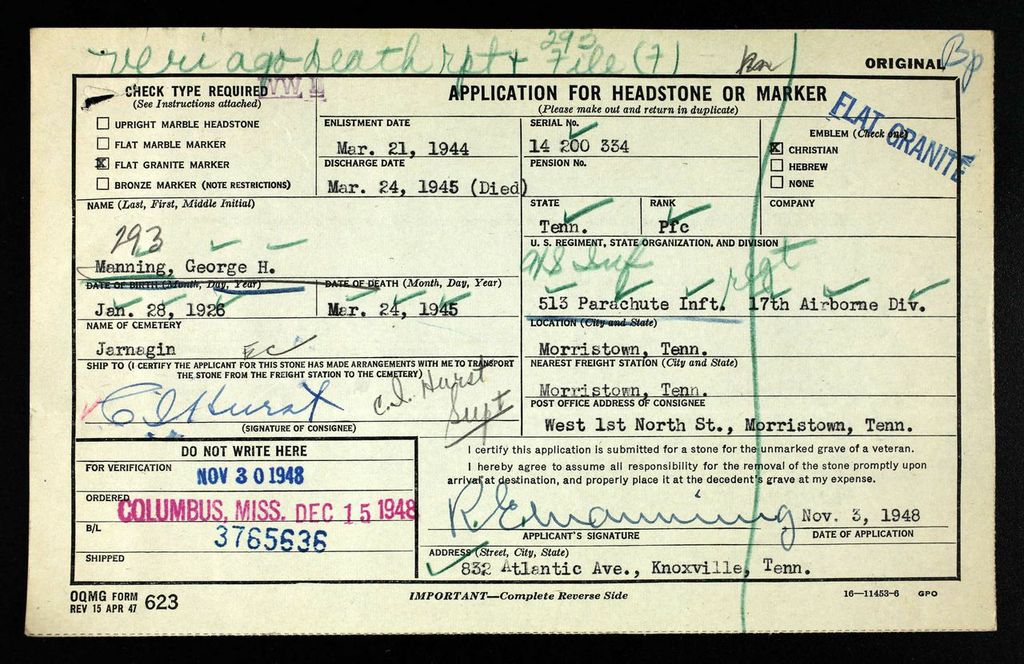 veri ago death rpt + 293 File (7)
ORIGINAL
Bp
CHECK TYPE REQUIRED
WW II
(See Instructions attached)
UPRIGHT MARBLE HEADSTONE
FLAT MARBLE MARKER
X FLAT GRANITE MARKER
BRONZE MARKER (NOTE RESTRICTIONS)
APPLICATION FOR HEADSTONE OR MARKER
(Please make out and return in duplicate)
ENLISTMENT DATE
Mar. 21, 1944
DISCHARGE DATE
Mar. 24, 1945 (Died)
SERIAL No.
14 200 334
PENSION No.
EMBLEM (Check one)
X CHRISTIAN
HEBREW
NONE
FLAT GRANITE
NAME (Last, First, Middle Initial)
293
Manning, George H.
STATE
Tenn.
RANK
Pfc
COMPANY
U. S. REGIMENT, STATE ORGANIZATION, AND DIVISION
Inf rgt
513 Parachute Inft. 17th Airborne Div.
DATE OF BIRTH (Month, Day, Year)
Jan. 28, 1926
DATE OF DEATH (Month, Day, Year)
Mar. 24, 1945
NAME OF CEMETERY
Jarnagin
EC
LOCATION (City and State)
Morristown, Tenn.
SHIP TO (I CERTIFY THE APPLICANT FOR THIS STONE HAS MADE ARRANGEMENTS WITH ME TO TRANSPORT
THE STONE FROM THE FREIGHT STATION TO THE CEMETERY)
C I Hurst
C. I. Hurst
Supt
(SIGNATURE OF CONSIGNEE)
NEAREST FREIGHT STATION (City and State)
Morristown, Tenn.
POST OFFICE ADDRESS OF CONSIGNEE
West 1st North St., Morristown, Tenn.
DO NOT WRITE HERE
FOR VERIFICATION
NOV 30 1948
ORDERED
COLUMBUS, MISS. DEC 15 1948
B/L
3765636
SHIPPED
I certify this application is submitted for a stone for the unmarked grave of a veteran.
I hereby agree to assume all responsibility for the removal of the stone promptly upon
arrival at destination, and properly place it at the decedent's grave at my expense.
R. E. Manning
Nov. 3, 1948
APPLICANT'S SIGNATURE
DATE OF APPLICATION
ADDRESS (Street, City, State)
832 Atlantic Ave., Knoxville, Tenn.
OQMG FORM
REV 15 APR 47 623
IMPORTANT—Complete Reverse Side
16—11453-6 GPO